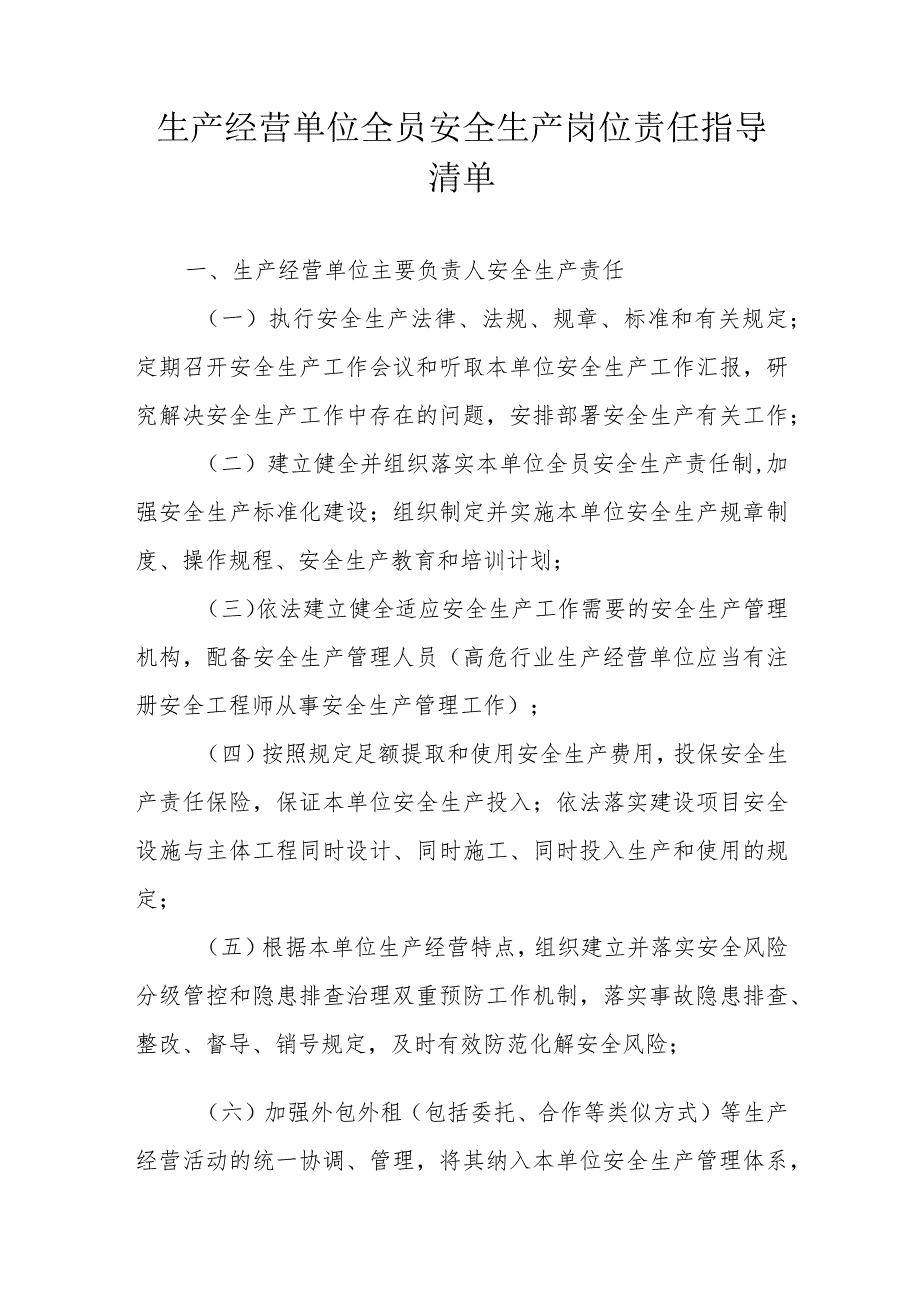 生产经营单位全员安全生产岗位责任指导
清单
一、生产经营单位主要负责人安全生产责任
（一）执行安全生产法律、法规、规章、标准和有关规定；
定期召开安全生产工作会议和听取本单位安全生产工作汇报，研
究解决安全生产工作中存在的问题，安排部署安全生产有关工作；
（二）建立健全并组织落实本单位全员安全生产责任制,加
强安全生产标准化建设；组织制定并实施本单位安全生产规章制
度、操作规程、安全生产教育和培训计划；
（三）依法建立健全适应安全生产工作需要的安全生产管理
机构，配备安全生产管理人员（高危行业生产经营单位应当有注
册安全工程师从事安全生产管理工作）；
（四）按照规定足额提取和使用安全生产费用，投保安全生
产责任保险，保证本单位安全生产投入；依法落实建设项目安全
设施与主体工程同时设计、同时施工、同时投入生产和使用的规
定；
（五）根据本单位生产经营特点，组织建立并落实安全风险
分级管控和隐患排查治理双重预防工作机制，落实事故隐患排查、
整改、督导、销号规定，及时有效防范化解安全风险；
（六）加强外包外租（包括委托、合作等类似方式）等生产
经营活动的统一协调、管理，将其纳入本单位安全生产管理体系，